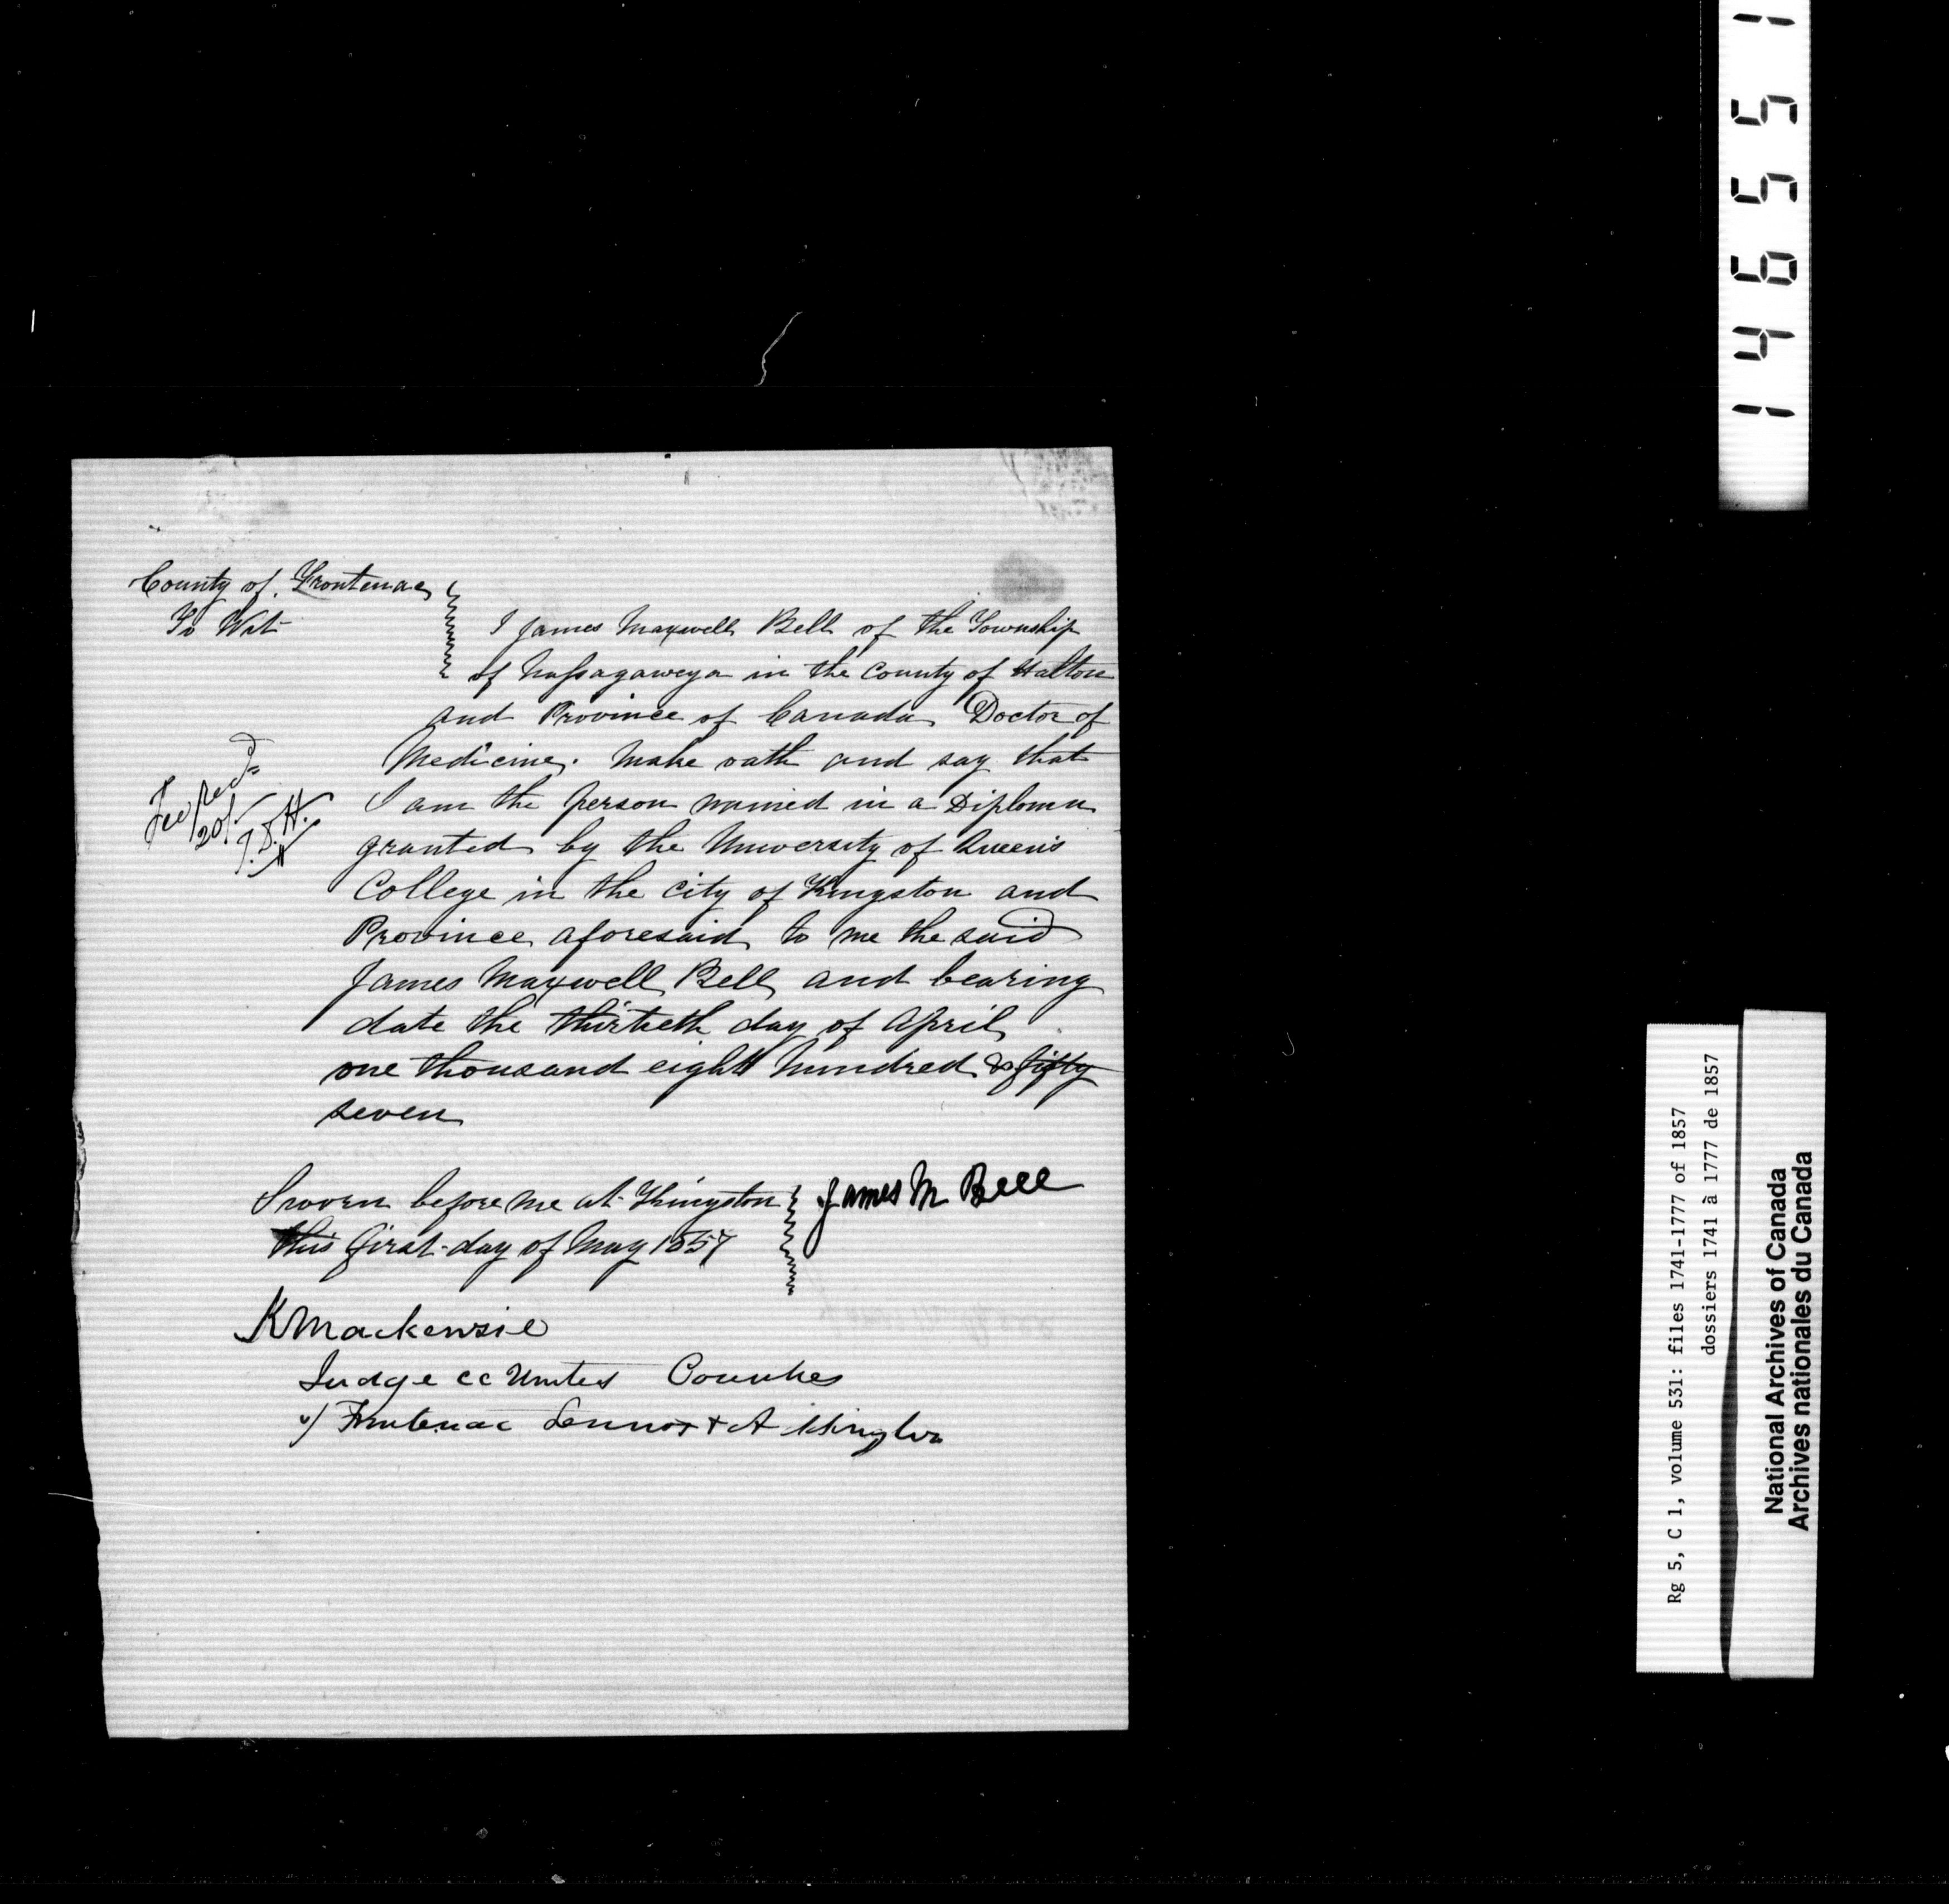 County of Frontenac
To Wit
I James Maxwell Bell of the Township
of Nassagaweya in the County of Halton
and Province of Canada Doctor of
Medicine. Make oath and say that
I am the person named in a Diploma
granted by the University of Queen's
College in the City of Kingston and
Province aforesaid to me the said
James Maxwell Bell and bearing
date the thirtieth day of April
one thousand eight hundred & fifty
seven
Fee recd
20/-
Sworn before me at Kingston
this first day of May 1857
James M Bell
K Mackenzie
Judge CC United Counties
of Frontenac Lennox + Addington
146551
Rg 5, C 1, volume 531: files 1741-1777 of 1857
dossiers 1741 à 1777 de 1857
National Archives of Canada
Archives nationales du Canada